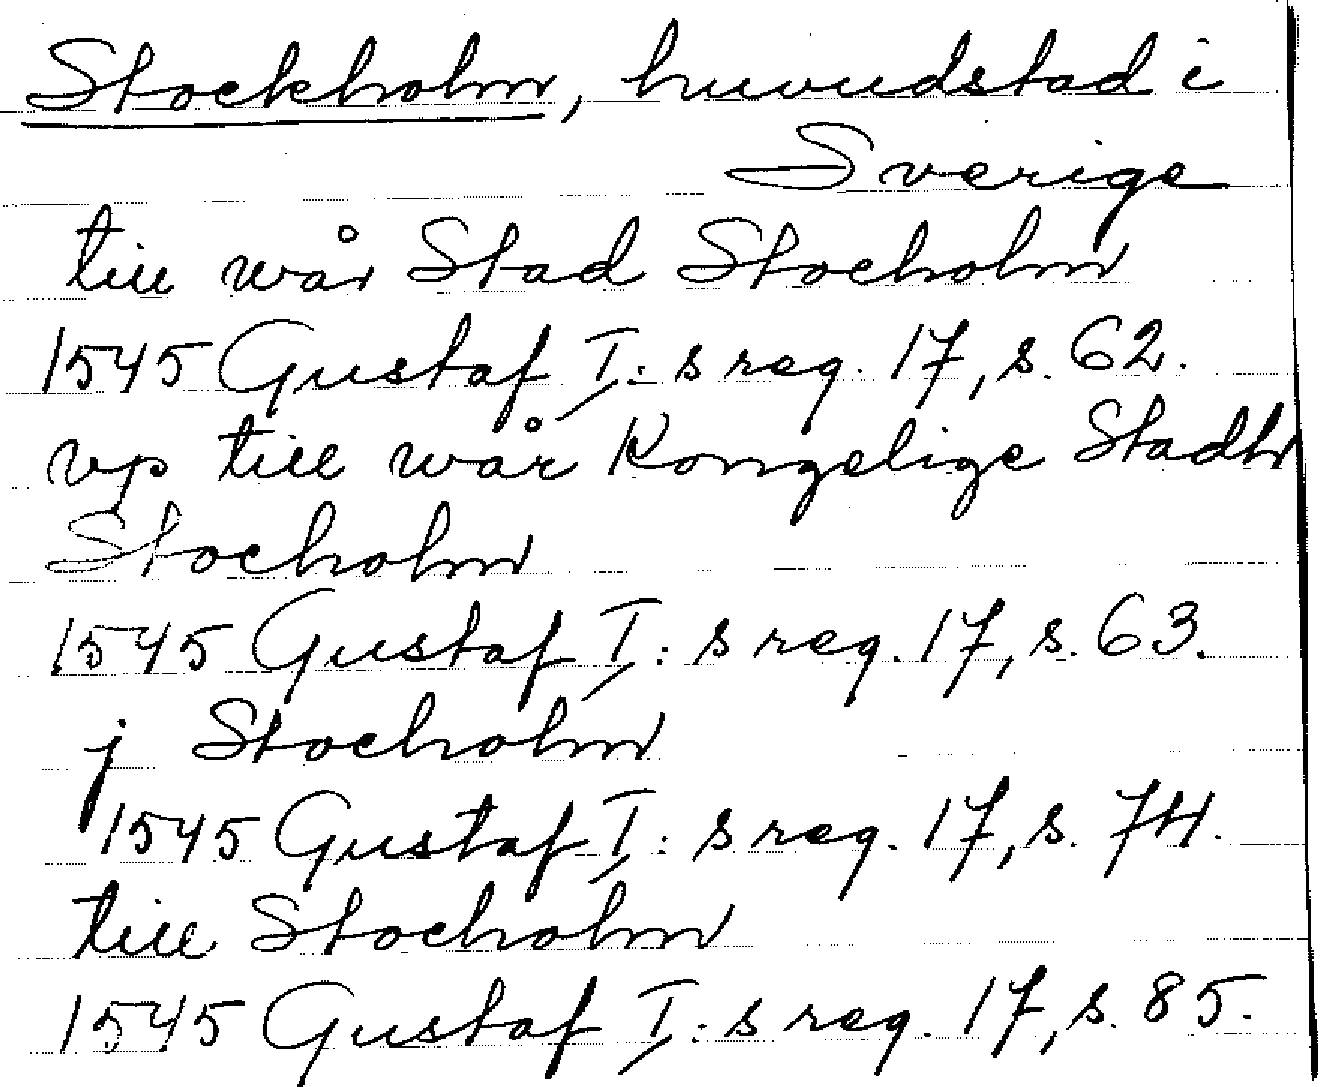 Stockholm, huvudstad i
Sverige
till wår Stad Stocholm
1545 Gustaf I:s reg. 17, s. 62.
vp till wår Kongelige Stadh
Stocholm
1545 Gustaf I:s reg. 17, s. 63.
j Stocholm
1545 Gustaf I:s reg. 17, s. 74.
till Stocholm
1545 Gustaf I:s reg. 17, s. 85.